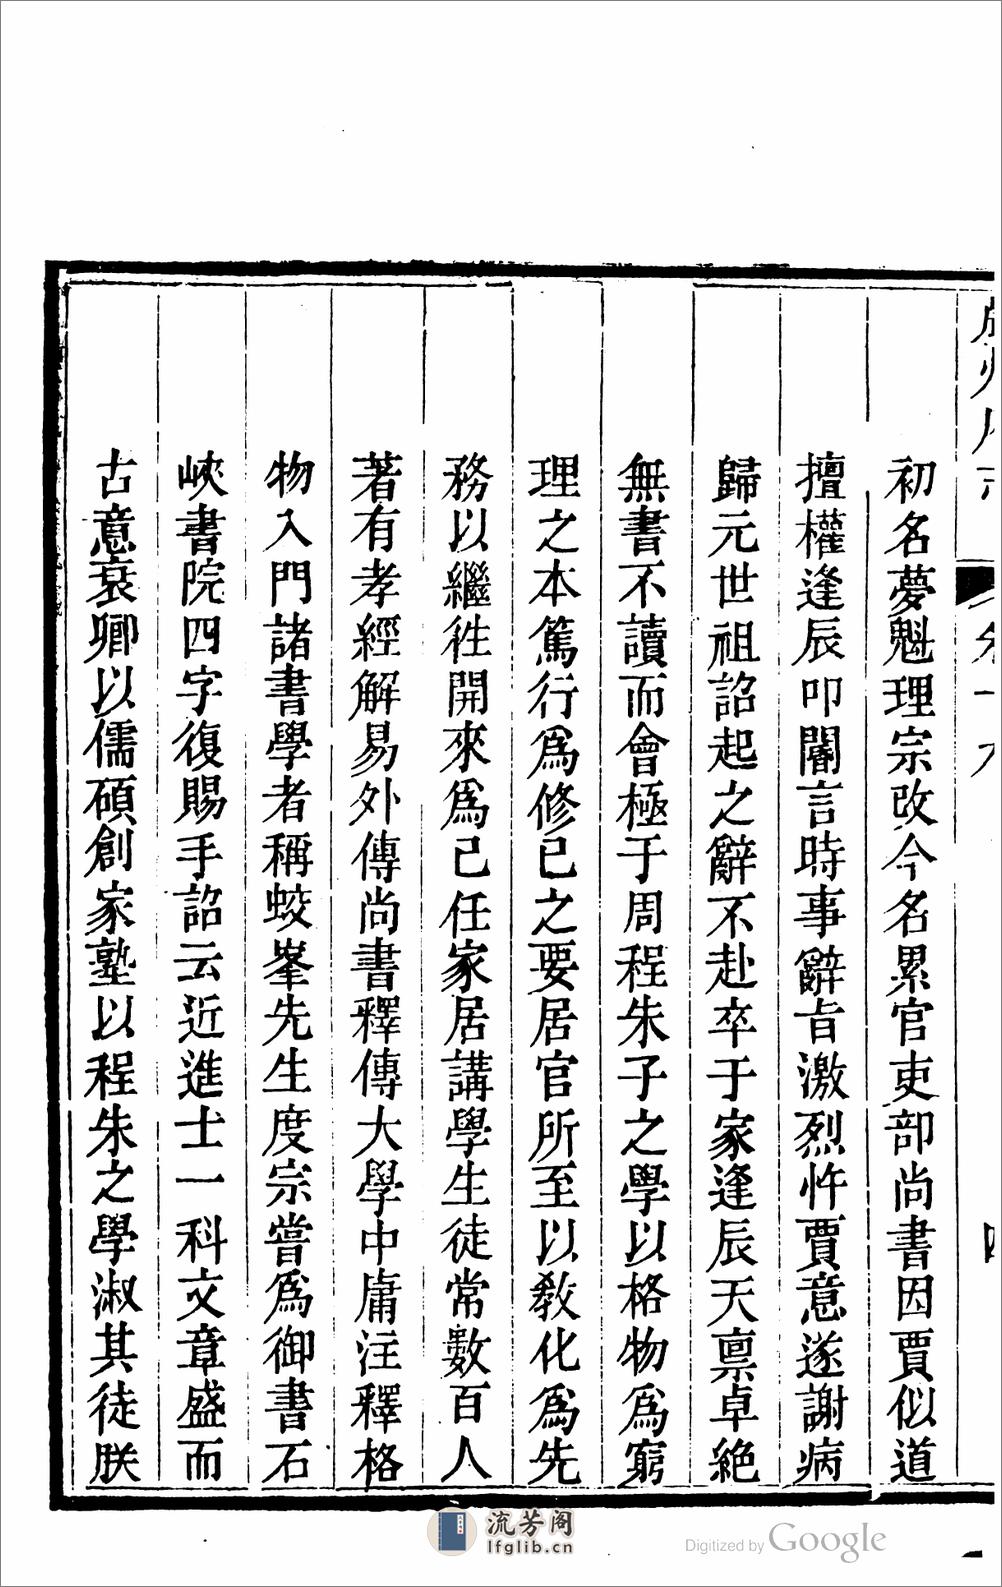 初名夢魁理宗改今名累官吏部尚書因賈似道
擅權逢辰叩閽言時事辭旨激烈忤賈意遂謝病
歸元世祖詔起之辭不赴卒于家逢辰天禀卓絕
無書不讀而會極于周程朱子之學以格物爲窮
理之本篤行爲修已之要居官所至以敎化爲先
務以繼徃開來爲己任家居講學生徒常數百人
著有孝經解易外傳尚書釋傳大學中庸注釋格
物入門諸書學者稱蛟峯先生度宗嘗爲御書石
峽書院四字復賜手詔云近進士一科文章盛而
古意衰卿以儒碩創家塾以程朱之學淑其徒朕
流芳阁
lfglib.cn
Digitized by Google